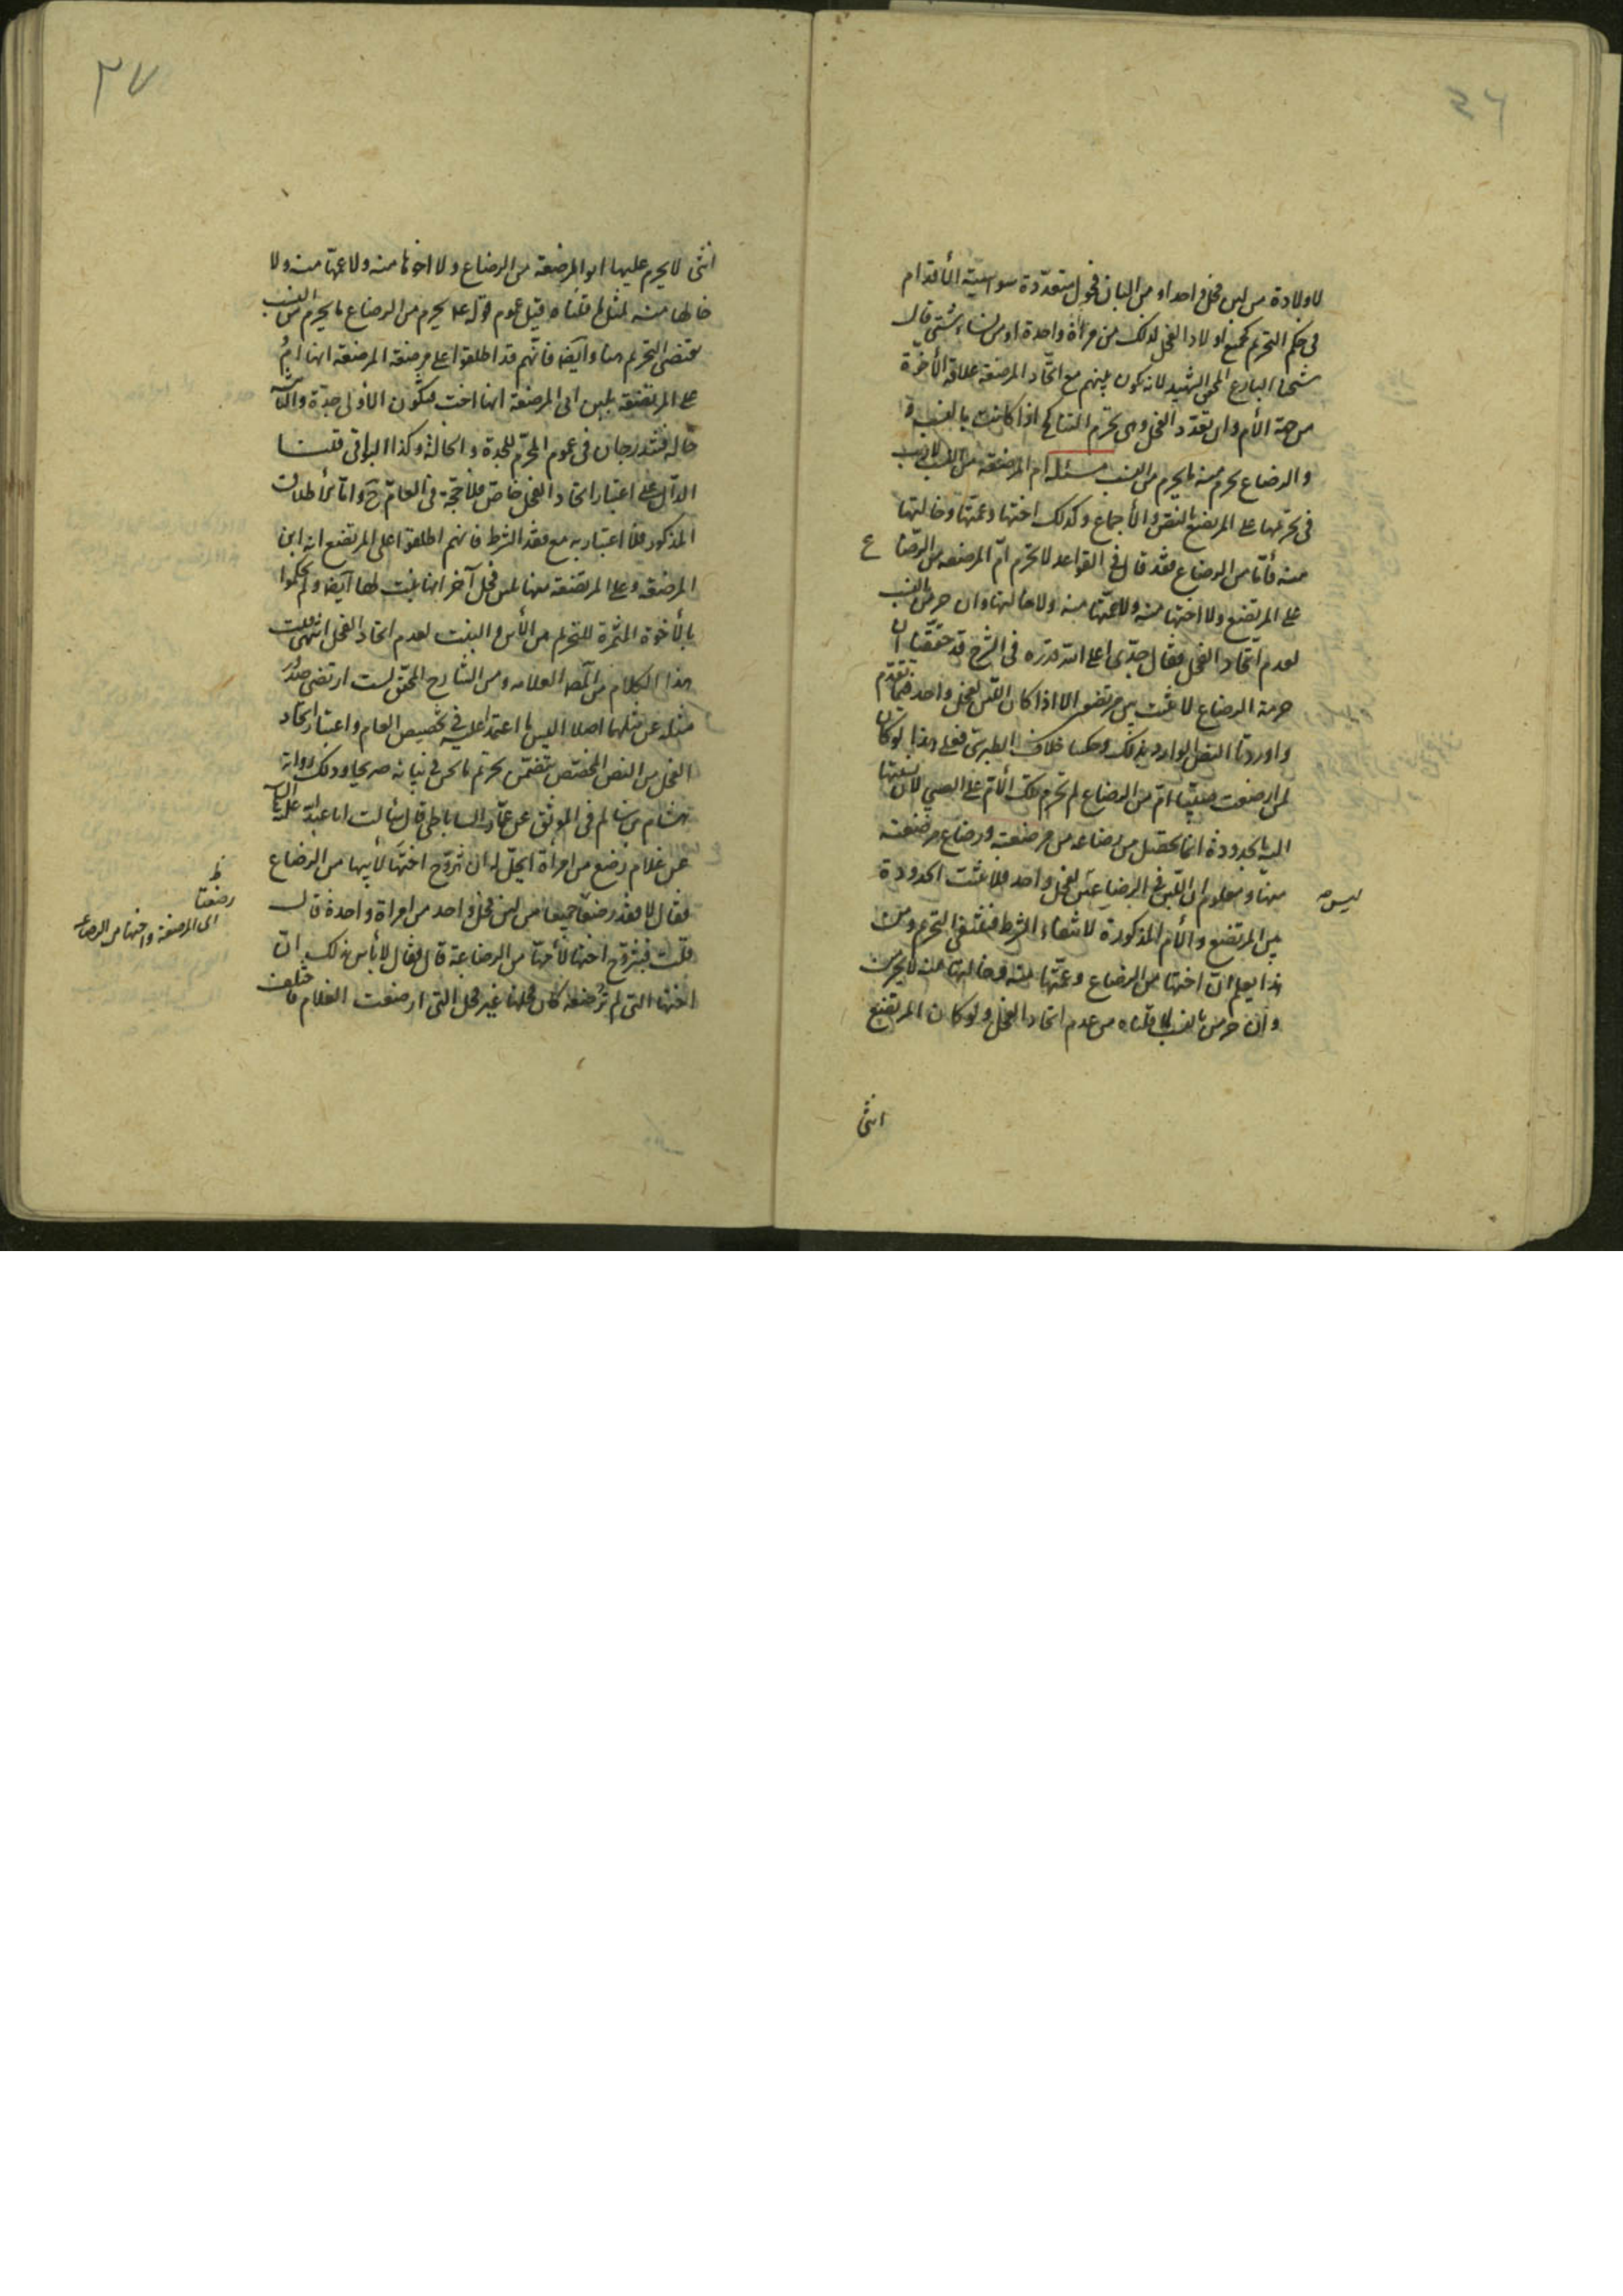 ٣٦
لاولادة من لبن فحل واحد او من البان فحول متعدّدة سواسيّة الأقدام
فى حكم التحريم كجميع اولاد الفحل لذلك من مرأة واحدة او من نساء شتى قال
شيخنا البارع المحقق الشهيد لانه يكون بينهم مع اتحاد المرضعة علاقة الأخوة
من جهة الأم وان تعدد الفحل وهى تحرم التناكح اذا كانت بالنسب و
والرضاع يحرم منه ما يحرم من النسب مسئلة ام المرضعة من النسب لاريب
فى تحريمها على المرتضع بالنص والأجماع وكذلك اختها وعمتها وخالتها
منه فأمّا من الرضاع فقد قال فى القواعد لا تحرم امّ المرضعة من الرضاع
على المرتضع ولا اختها منه ولا عمّتها منه ولا خالتها وان حرمن بالنسب
لعدم اتّحاد الفحل فقال جدّى اعلى الله قدره فى الشرح قد حققنا ان
حرمة الرضاع لا تثبت بين مرتضعين الا اذا كان اللبن لفحل واحد فيما تقدم
واوردنا النص الوارد بذلك وحكينا خلاف الطبرسى فعلى هذا لو كان
لمن ارضعت صبيّا امّ من الرضاع لم تحرم تلك الأم على الصبى لان نسبتها
اليه بالجدودة انما تحصل من رضاعه من مرضعته ورضاع مرضعته
منها ومعلوم ان اللبن فى الرضاعين لفحل واحد فلا تثبت الجدودة
ليس
بين المرتضع والأم المذكورة لانتفاء الشرط فينتفى التحريم ومن
هذا يعلم انّ اختها من الرضاع وعمّتها منه وخالتها منه لا يحرمن
وان حرمن بالنسب لما قلناه من عدم اتحاد الفحل ولو كان المرتضع
انثى
٣٧
انثى لا يحرم عليها ابو المرضعة من الرضاع ولا اخوها منه ولا عمها منه ولا
خالها منه لمثل ما قلناه قيل عموم قوله ع يحرم من الرضاع ما يحرم من النسب
يقتضى التحريم هنا وايضا فانّهم قد اطلقوا على مرضعة المرضعة انها امّ
على المرتضعة بلبن ابى المرضعة انها اخت فتكون الاولى جدة والثانية
خالة فتندرجان فى عموم المحرّم للجدة والخالة وكذا البواقى قلنا
الدّال على اعتبار اتحاد الفحل خاصّ فلا حجّة فى العامّ ح وامّا اطلاق
المذكور فلا اعتبار به مع فقد الشرط فانهم اطلقوا على المرتضع انه ابن
المرضعة وعلى المرتضعة منها بلبن فحل آخر انها بنت لها ايضا ولم يحكموا
بالأخوة المثمرة للتحريم بين الأبن والبنت لعدم اتحاد الفحل انتهى قلت
هذا الكلام من المصـ العلامه ومن الشارح المحقق لست ارتضى صدور
مثله عن مثلهما اصلا اليس ما اعتمدا عليه فى تخصيص العام واعتبار اتحاد
الفحل من النص المخصّص يتضمّن تحريم ما نحن فى بيانه صريحا وذلك رواية
هشام بن سالم فى الموثق عن عمّار الساباطى قال سألت ابا عبد الله عليه السلام
عن غلام رضع من امرأة ايحل له ان يتزوّج اختها لأبيها من الرضاع
فقال لا فقد رضعا جميعا من لبن فحل واحد من امراة واحدة قال
ظ
رضعتا
اى المرضعة واختها من الرضاعه
قلت فيتزوّج اختها لأمّها من الرضاعة قال فقال لا بأس بذلك انّ
اختها التى لم ترضعه كان فحلها غير فحل التى ارضعت الغلام فاختلف